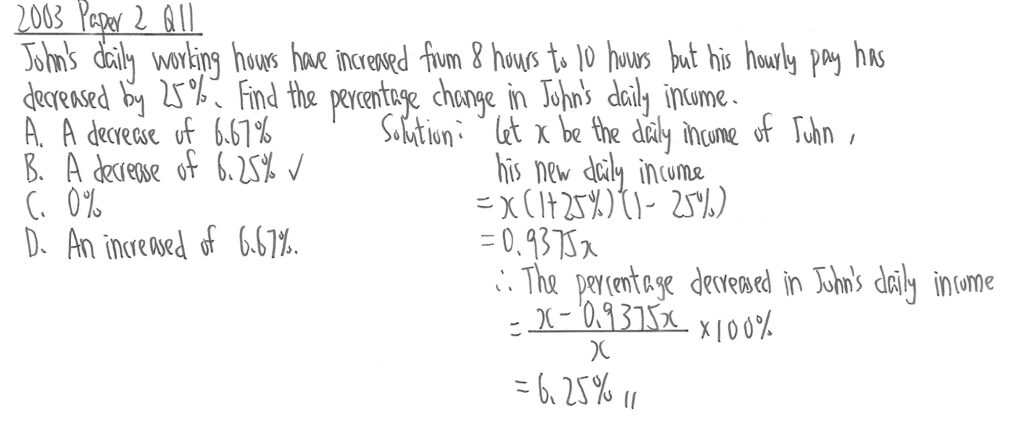 2003 Paper 2 Q11
John's daily working hours have increased from 8 hours to 10 hours but his hourly pay has
decreased by 25%. Find the percentage change in John's daily income.
A. A decrease of 6.67%
B. A decrease of 6.25% ✓
C. 0%
D. An increased of 6.67%.
Solution: Let x be the daily income of John,
his new daily income
= x(1+25%)(1-25%)
= 0.9375x
∴ The percentage decreased in John's daily income
= \frac{x - 0.9375x}{x} × 100%
= 6.25% //